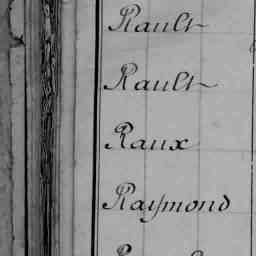 Rault
Rault
Raux
Raymond